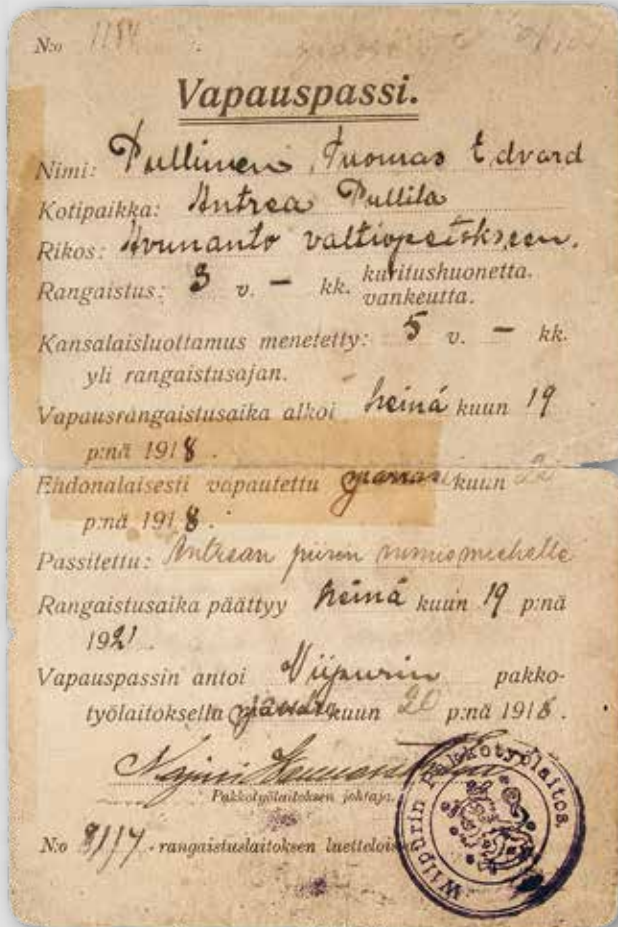 N:o 1184
Vapauspassi.
Nimi: Pullinen, Tuomas Edvard
Kotipaikka: Antrea Pullila
Rikos: Avunanto valtiopetokseen.
Rangaistus: 3 v. — kk. kuritushuonetta.
vankeutta.
Kansalaisluottamus menetetty: 5 v. — kk.
yli rangaistusajan.
Vapausrangaistusaika alkoi heinä kuun 19
p:nä 1918.
Ehdonalaisesti vapautettu marras kuun 20
p:nä 1918.
Passitettu: Antrean piirin nimismiehelle
Rangaistusaika päättyy heinä kuun 19 p:nä
1921
Vapauspassin antoi Viipurin pakko-
työlaitoksella marras kuun 20 p:nä 1918.
Pakkotyölaitoksen johtaja.
N:o rangaistuslaitoksen luetteloissa
Wiipurin Pakkotyölaitos.